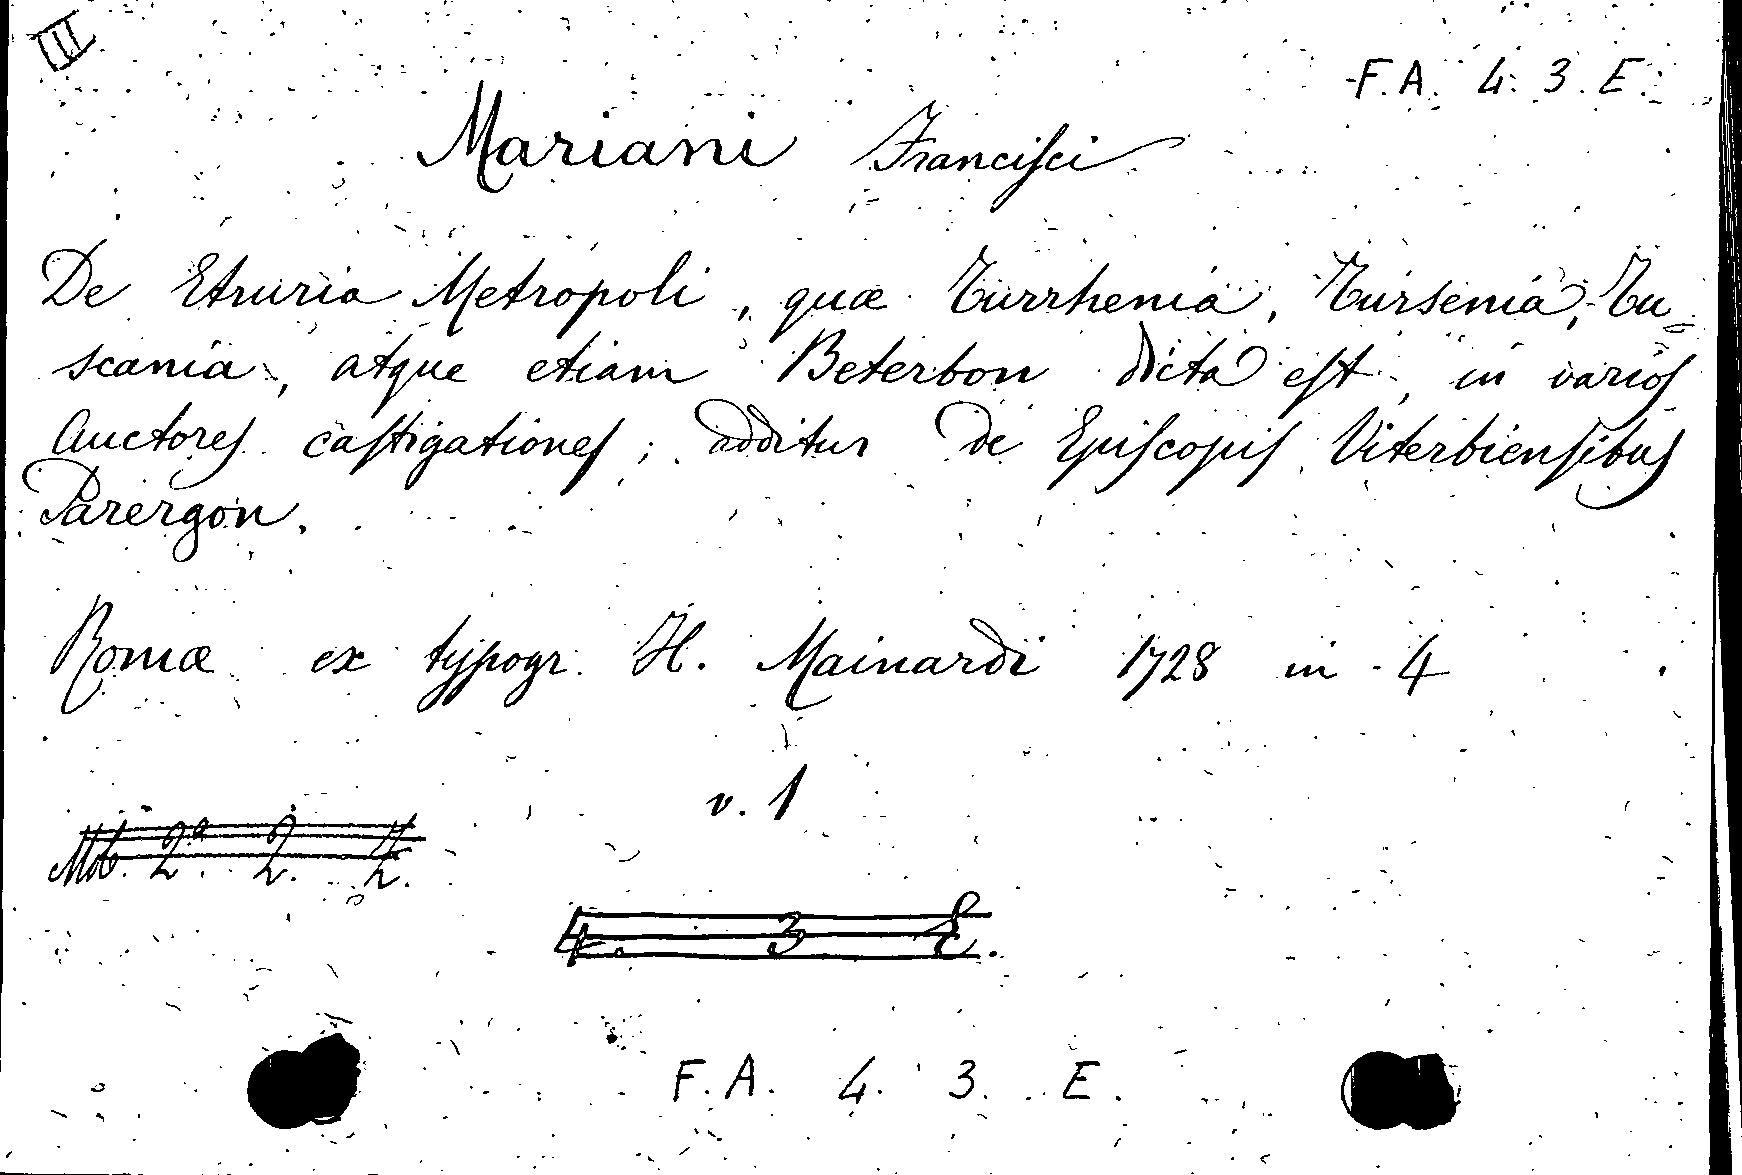 III
F. A. 4. 3. E.
Mariani Francisci
De Etruria Metropoli, quæ Turrhenia, Tursenia, Tu=
scania, atque etiam Beterbon dicta est, in varios
Auctores castigationes; additur de Episcopis Viterbiensibus
Parergon.
Romæ ex typogr. H. Mainardi 1728 in-4
v. 1
2ª 2. 4.
4. 3 E.
F. A. 4. 3. E.